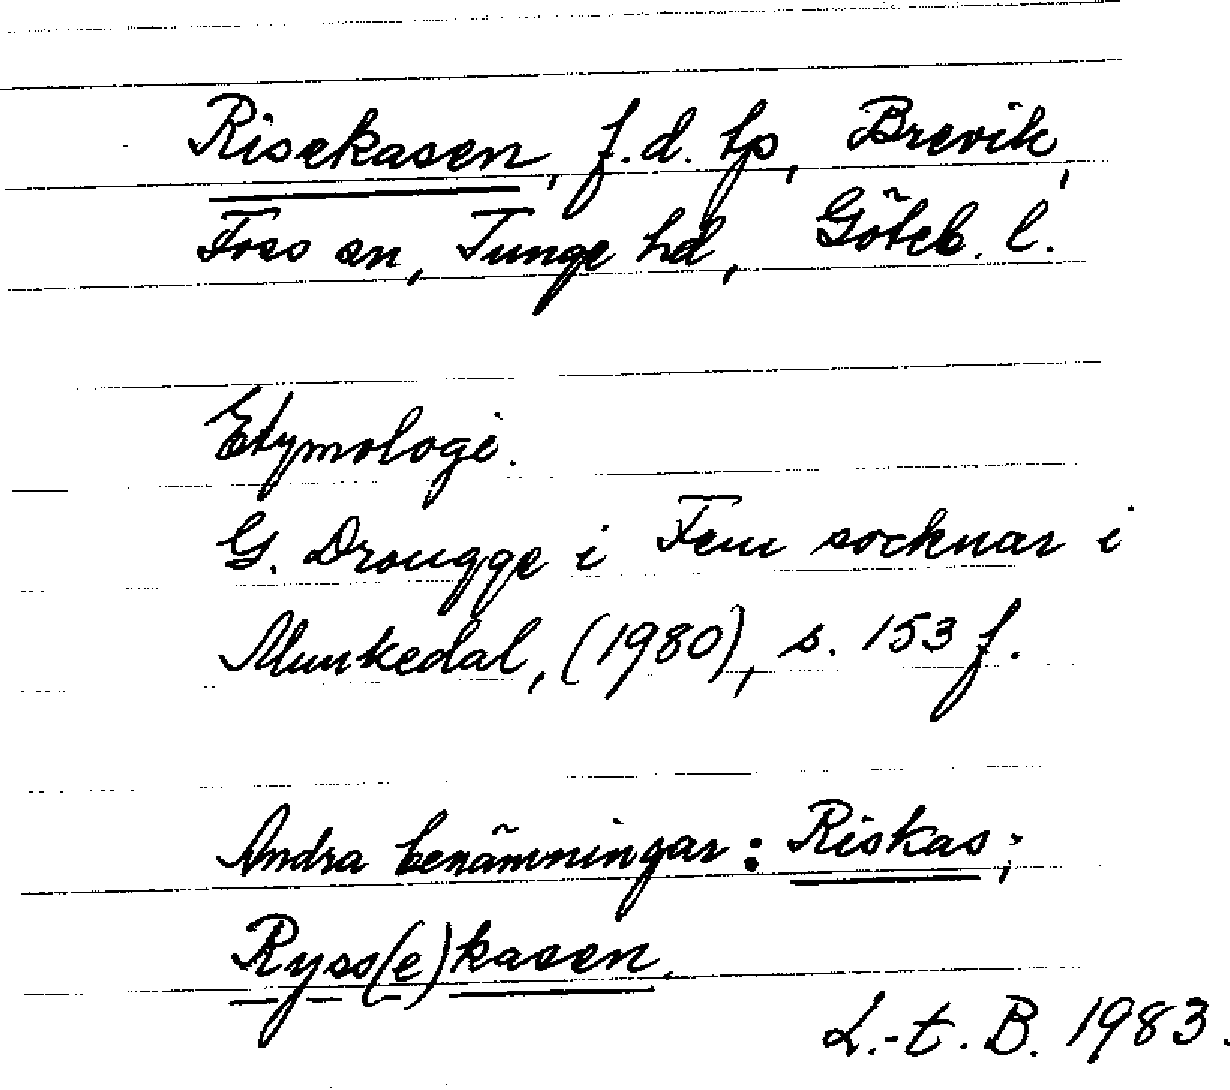 Risekasen, f.d. tp, Brevik,
Foss sn, Tunge hd, Göteb. l.
Etymologi.
G. Drougge i Fem socknar i
Munkedal, (1980), s. 153 f.
Andra benämningar: Riskas;
Ryss(e)kasen.
L.-t. B. 1983.